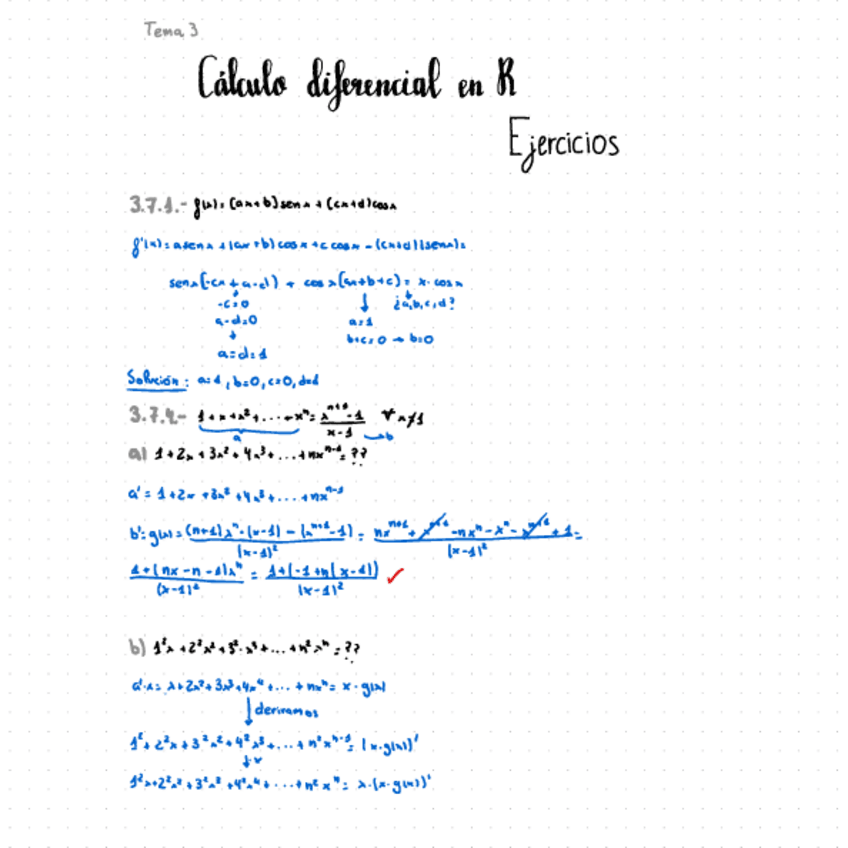 Tema 3
Cálculo diferencial en R
Ejercicios
3.7.1.- f(x)= (ax+b)senx + (cx+d)cosx
f'(x)= asenx + (ax+b)cosx + c cosx - (cx+d)(senx)=
senx(-cx+a-d)) + cosx(ax+b+c)= x·cosx
-c=0 ↓ ¿a,b,c,d?
a-d=0 a=1
↓ b+c=0 → b=0
a=d=1
Solución: a=1, b=0, c=0, d=1
3.7.2.- 1+x+x²+...+xⁿ = (xⁿ⁺¹-1)/(x-1) ∀x≠1
a → b
a) 1+2x+3x²+4x³+...+nxⁿ⁻¹=??
a'= 1+2x+3x²+4x³+...+nxⁿ⁻¹
b'=g(x)= ((n+1)xⁿ·(x-1)-(xⁿ⁺¹-1))/(x-1)² = (nxⁿ⁺¹+xⁿ⁺¹-nxⁿ-xⁿ-xⁿ⁺¹+1)/(x-1)² =
(1+(nx-n-1)xⁿ)/(x-1)² = (1+(-1+n(x-1))/(x-1)² ✓
b) 1²x+2²x²+3²·x³+...+n²xⁿ=??
a'·x= x+2x²+3x³+4x⁴+...+nxⁿ= x·g(x)
↓ derivamos
1²+2²x+3²x²+4²x³+...+n²xⁿ⁻¹= (x·g(x))'
↓·x
1²x+2²x²+3²x³+4²x⁴+...+n²xⁿ= x·(x·g(x))'